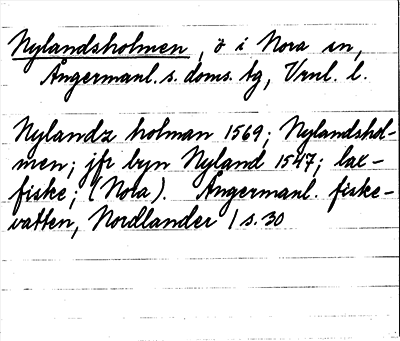 Nylandsholmen, ö i Nora sn,
Ångermanl. s. doms. tg, Vrnl. l.
Nylandz holman 1569; Nylandshol-
men; jfr byn Nyland 1547; lax-
fiske; (Nora). Ångermanl. fiske-
vatten, Nordlander / s. 30